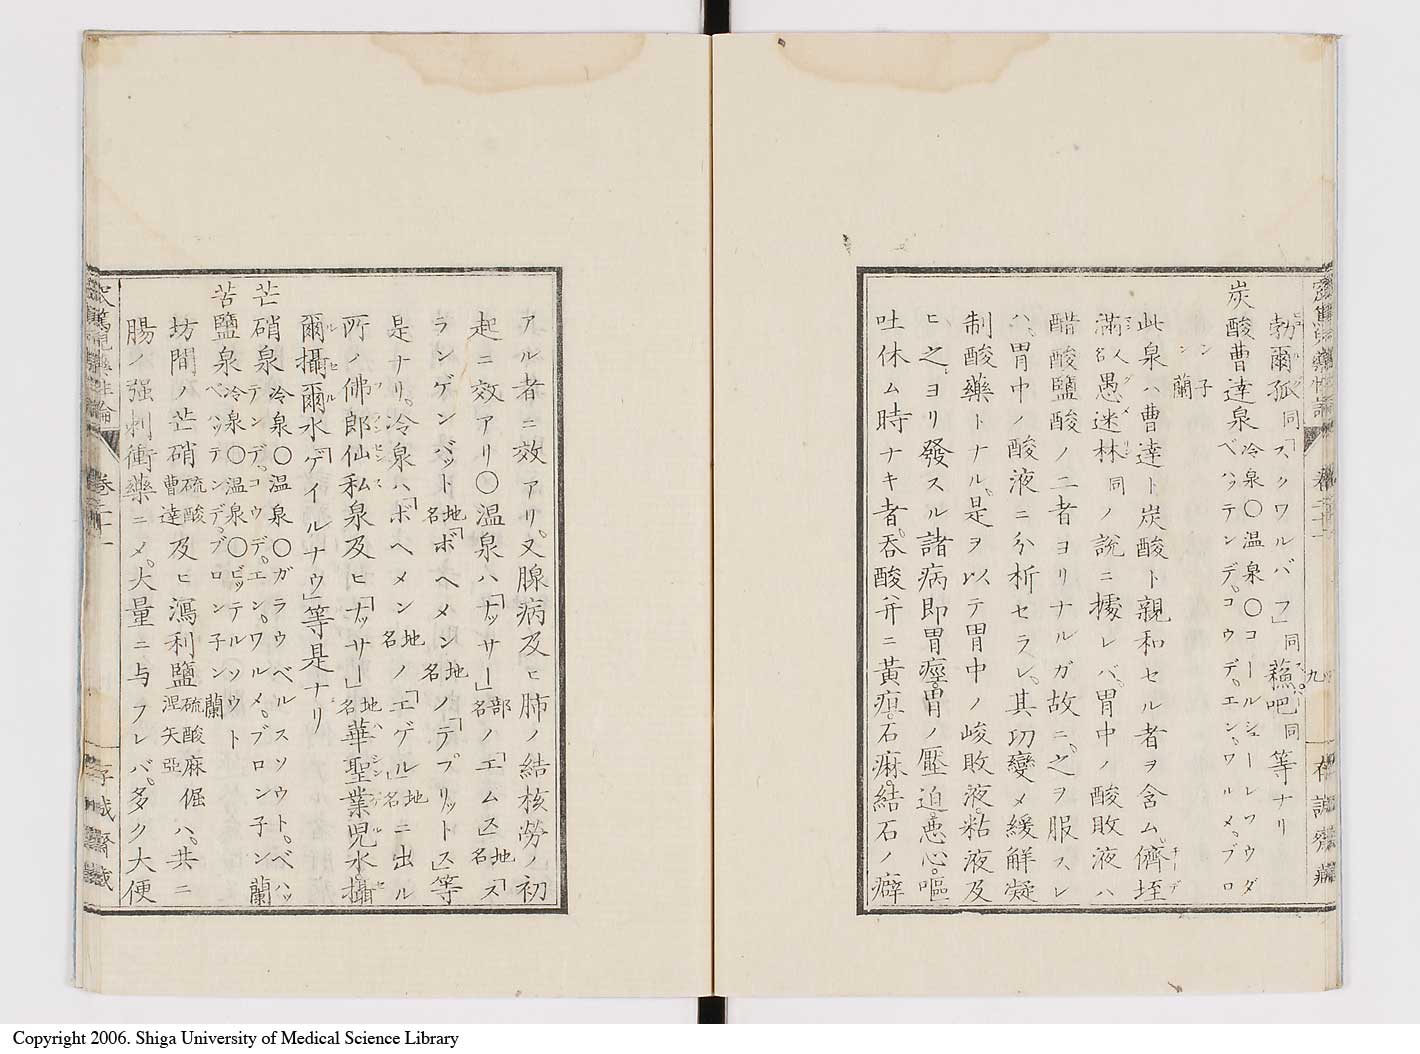 勃爾孤同「スクワルバフ」同 蘓吧同等ナリ
炭酸曹達泉 冷泉〇温泉〇コールシューレフウダ
ベハッテンデ。コウデ。エン。ワルメ。ブロ
ンネン 蘭
此泉ハ曹達ト炭酸ト親和セル者ヲ含ム。儕垤
滿人名愚迷林同ノ說ニ據レバ。胃中ノ酸敗液ハ
醋酸鹽酸ノ二者ヨリナルガ故ニ。之ヲ服スレ
ハ。胃中ノ酸液ニ分析セラレ。其功變メ緩解凝
制酸藥トナル。是ヲ以テ胃中ノ峻敗液。粘液及
ヒ之ヨリ發スル諸病即胃痙。胃ノ壓迫。悪心。嘔
吐休ム時ナキ者。呑酸并ニ黃疸。石痳。結石ノ癖
九
アル者ニ效アリ。又腺病及ヒ肺ノ結核勞ノ初
起ニ效アリ〇温泉ハ「ナッサー」部名ノ「エムス」地名「ス
ランゲンバット地名「ボヘメン地名ノ「テブリットス」等
是ナリ。冷泉ハ「ボヘメン地名ノ「エゲル」地名ニ出ル
所ノ佛郎仙私泉及ヒ「ナッサー」地名華聖業児水攝
爾攝爾水「ゲイルナウ」等是ナリ
芒硝泉 冷泉〇温泉〇ガラウベルスソウト。ベハッ
テンデ。コウデ。エン。ワルメ。ブロン子ン 蘭
苦鹽泉 冷泉〇温泉〇ビッテルソウト
ベハッテンデ。ブロン子ン 蘭
坊間ノ芒硝硫酸曹達及ヒ瀉利鹽硫酸麻倔涅矢亞ハ。共ニ
腸ノ强刺衝藥ニメ。大量ニ与フレバ。多ク大便